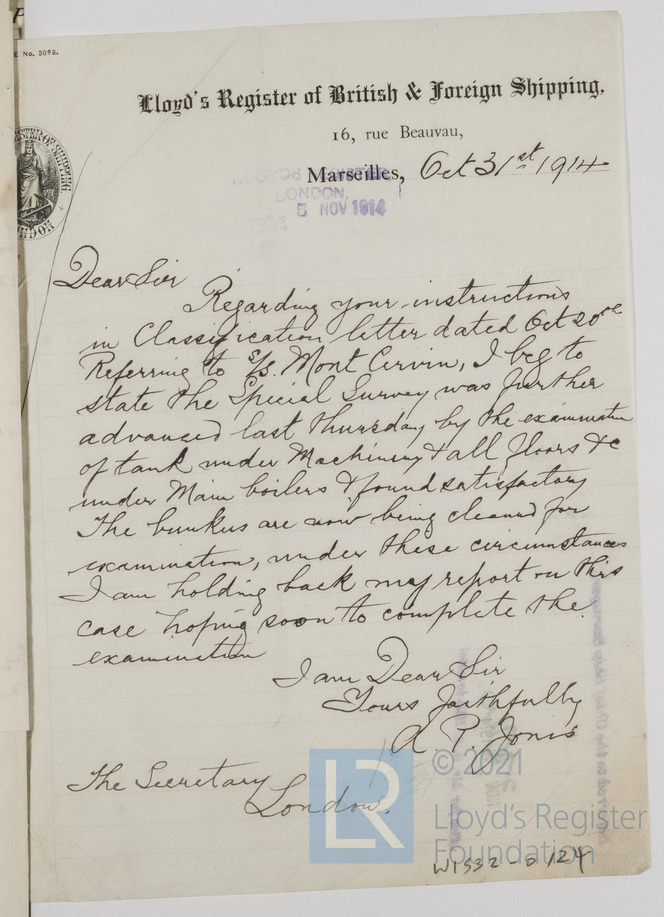 E No. 3093.
Lloyd's Register of British & Foreign Shipping,
16, rue Beauvau,
Marseilles, Oct 31st 1914
LLOYDS REGISTER,
LONDON,
5 NOV 1914
Dear Sir
Regarding your instructions
in Classification letter dated Oct 20
Referring to S/S. Mont Cervin, I beg to
state the Special Survey was further
advanced last Thursday by the examination
of tank under Machinery & all floors &c
under Main boilers & found satisfactory
The bunkers are now being cleaned for
examination, under these circumstances
I am holding back my report on this
case hoping soon to complete the
examination
I am Dear Sir
Yours Faithfully
A P Jones
The Secretary
London.
LR
© 2021
Lloyd's Register
Foundation
W1532-0124